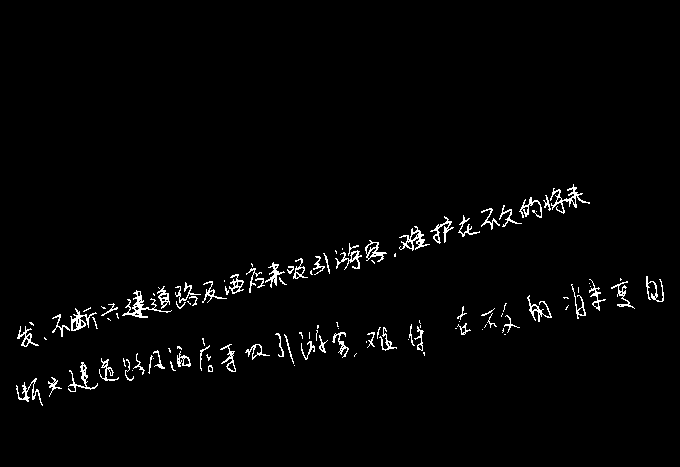 发、不断兴建道路及酒店来吸引游客,难护在不久的将来
断兴建道路及酒店来吸引游客,难保 在不久的消来变自